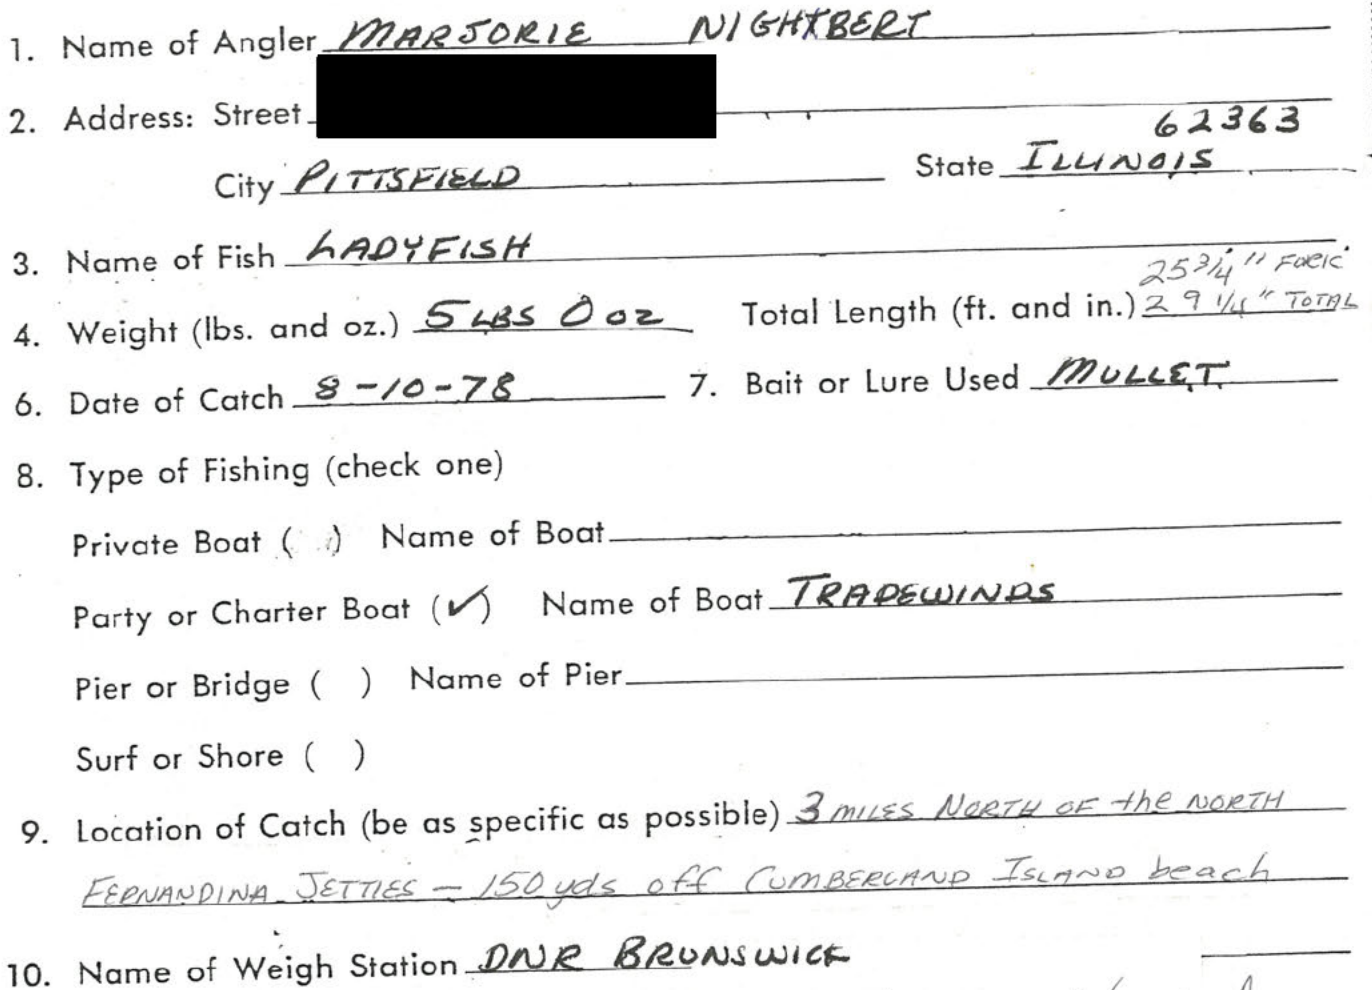 1. Name of Angler MARJORIE NIGHTBERT
2. Address: Street
62363
City PITTSFIELD State ILLINOIS
3. Name of Fish LADYFISH
25 3/4" FORK
4. Weight (lbs. and oz.) 5 LBS 0 oz Total Length (ft. and in.) 29 1/4" TOTAL
6. Date of Catch 8-10-78 7. Bait or Lure Used MULLET
8. Type of Fishing (check one)
Private Boat ( ) Name of Boat
Party or Charter Boat (✓) Name of Boat TRADEWINDS
Pier or Bridge ( ) Name of Pier
Surf or Shore ( )
9. Location of Catch (be as specific as possible) 3 MILES NORTH OF the NORTH
FERNANDINA JETTIES - 150 yds off CUMBERLAND ISLAND beach
10. Name of Weigh Station DNR BRUNSWICK